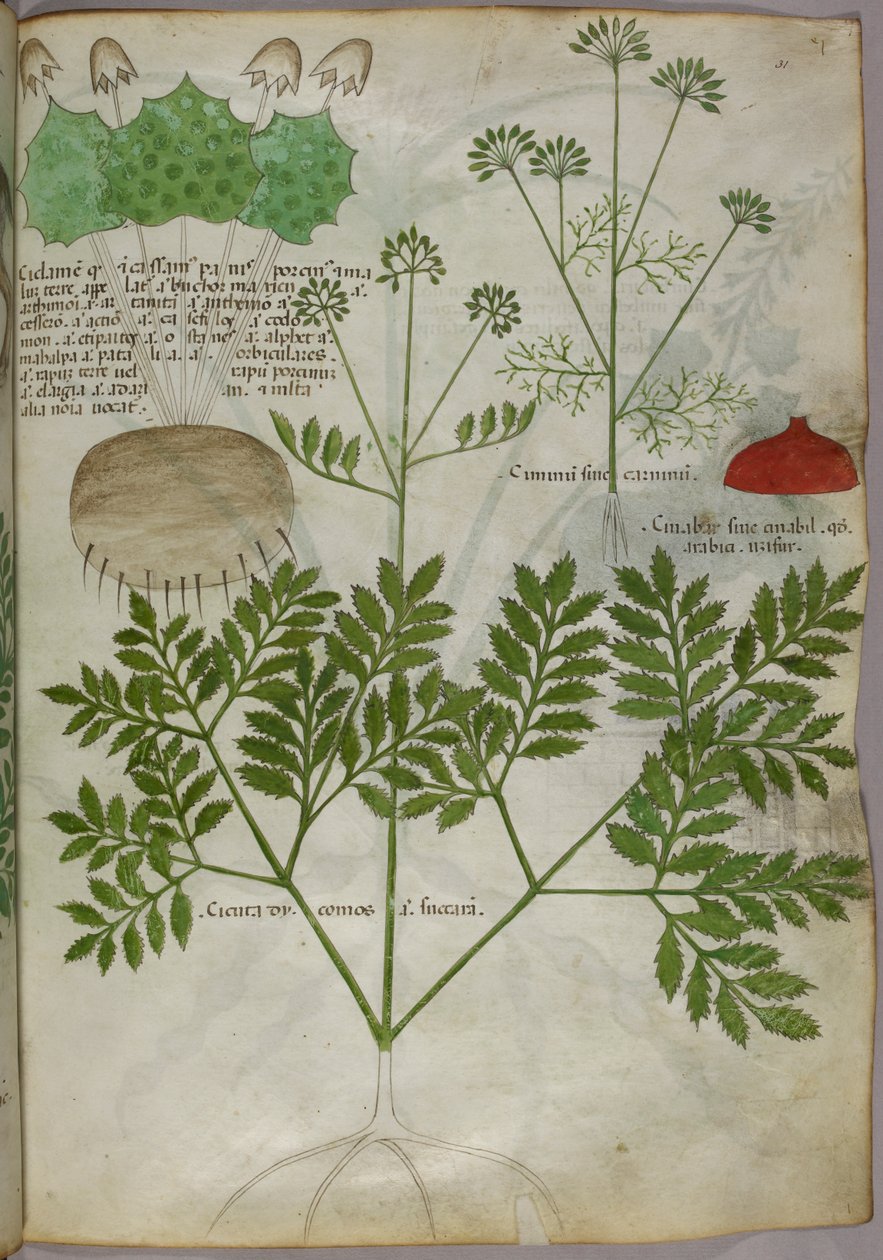 31
Ciclamē q̄ icassam᷒ panis porcin᷒ ima
lūr terre appellat᷒ a᷒ buchor maricū a᷒.
arthimoi. a᷒. artanita a᷒ anthimō a᷒
cesserō. a᷒ actiō a᷒ casefilos a᷒ cedo
mon. a᷒ etipaites a᷒ ostanes a᷒ alphet a᷒
mahalpa a᷒ patalia. a᷒. orbiculares.
a᷒. rapuʒ terre uel rapū porcinuʒ
a᷒ elargia a᷒ adarian. ⁊ ml̄ta
alia nōia uocat᷒.
. Ciminū siue carminū.
. Cinabar siue cinabil. qđ.
arabice. uzifur.
. Cicuta dy. comos a᷒. succarā.